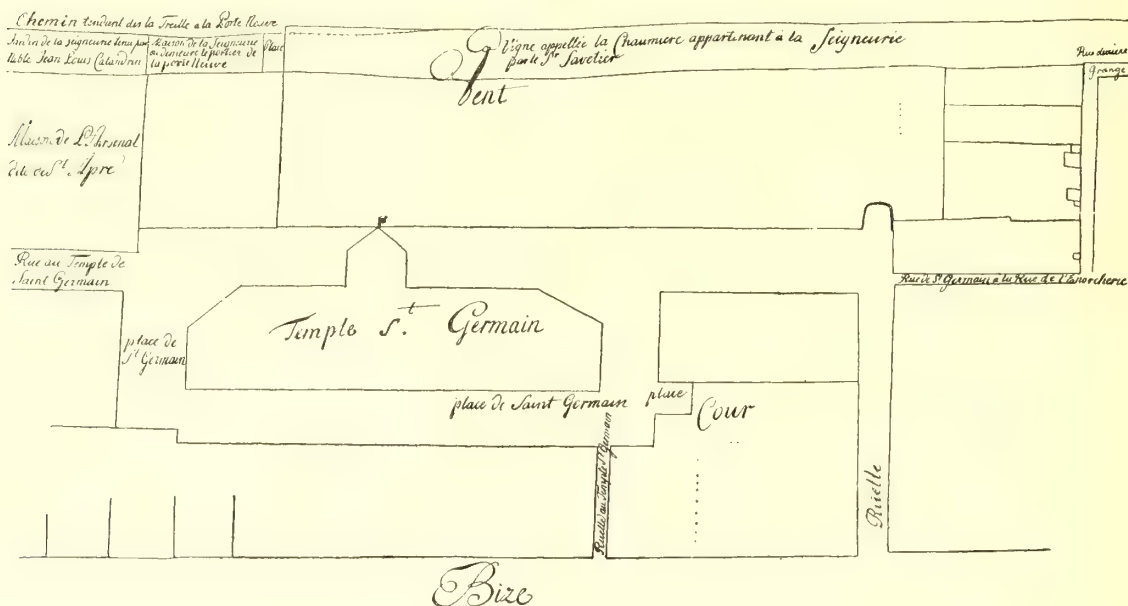 Chemin tendant dès la Treille a la Porte Neuve
Jardin de la seigneurie tenu par
Noble Jean Louis Calandrin
Maison de la Seigneurie
ou demeure le portier de
la porte Neuve
Place
Vigne appellée la Chaumiere appartenant à la Seigneurie
par le Sr Savetier
Vent
Rue derriere
grange
Maison de L'Arsenal
dite de St. Apre
Rue au Temple de
Saint Germain
Rue de St Germain à la Rue de l'Encorcherie
Temple St. Germain
place de
St Germain
place de Saint Germain
place
Cour
Ruelle au Temple St Germain
Ruelle
Bize